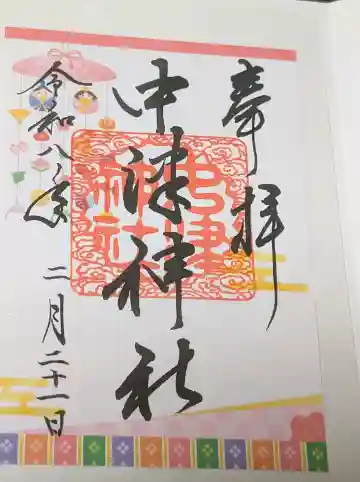 奉拝
中津神社
令和八年
二月二十一日
中津神社